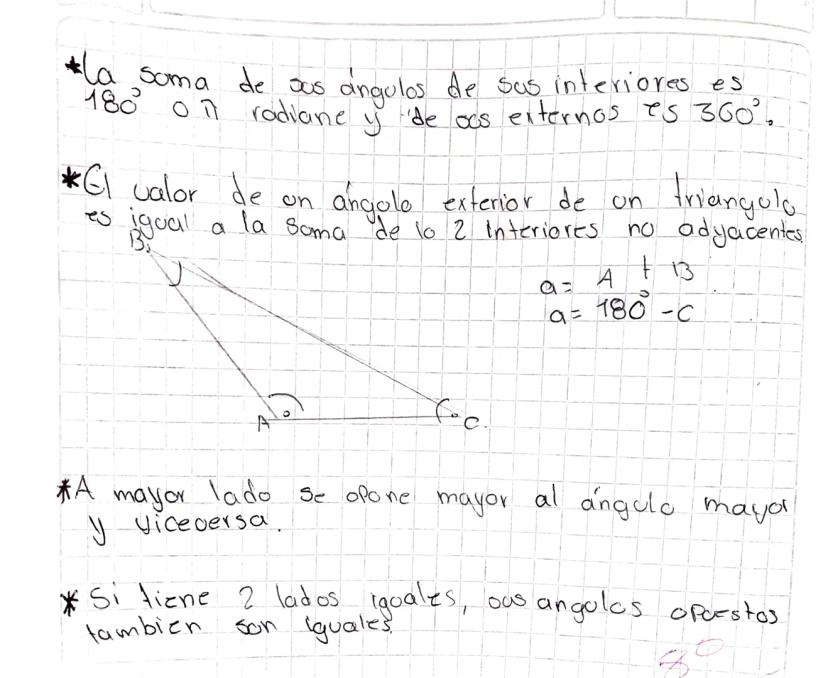 *La soma de sus ángulos de sus interiores es
180° o π radiane y de sus externos es 360°.
*El valor de un ángulo exterior de un triangulo
es igual a la soma de lo 2 interiores no adyacentes
B
a= A + B
a= 180° - C
A
C.
*A mayor lado se opone mayor al ángulo mayor
y viceversa.
* Si tiene 2 lados iguales, sus angulos opuestos
tambien son iguales.